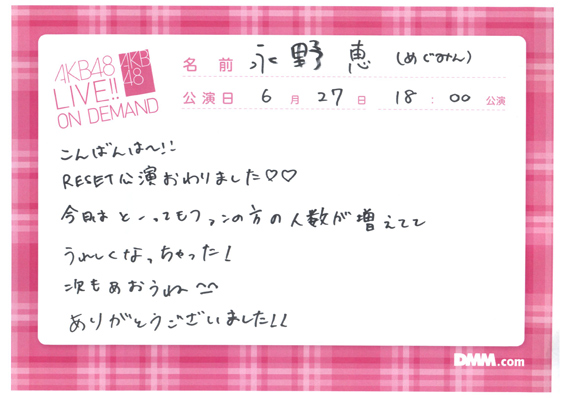 AKB48
LIVE!!
ON DEMAND
AKB
48
名前 永野 恵 (めぐみん)
公演日 6月27日 18:00公演
こんばんは〜!!
RESET公演おわりました♡♡
今日は とーってもファンの方の人数が増えてて
うれしくなっちゃった!
次もあおうね ^^
ありがとうございました!!
DMM.com